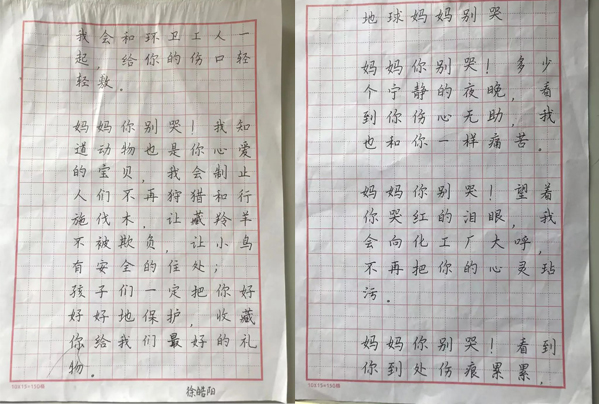 地球妈妈别哭
妈妈你别哭！多少
个宁静的夜晚，看
到你伤心无助，我
也和你一样痛苦。
妈妈你别哭！望着
你哭红的泪眼，我
会向化工厂大呼，
不再把你的心灵玷
污。
妈妈你别哭！看到
你到处伤痕累累，
10X15=150格
我会和环卫工人一
起，给你的伤口轻
轻敷。
妈妈你别哭！我知
道动物也是你心爱
的宝贝，我会制止
人们不再狩猎和行
施伐木，让藏羚羊
不被欺负，让小鸟
有安全的住处；
孩子们一定把你好
好好地保护，收藏
你给我们最好的礼
物。
10X15=150格
徐皓阳